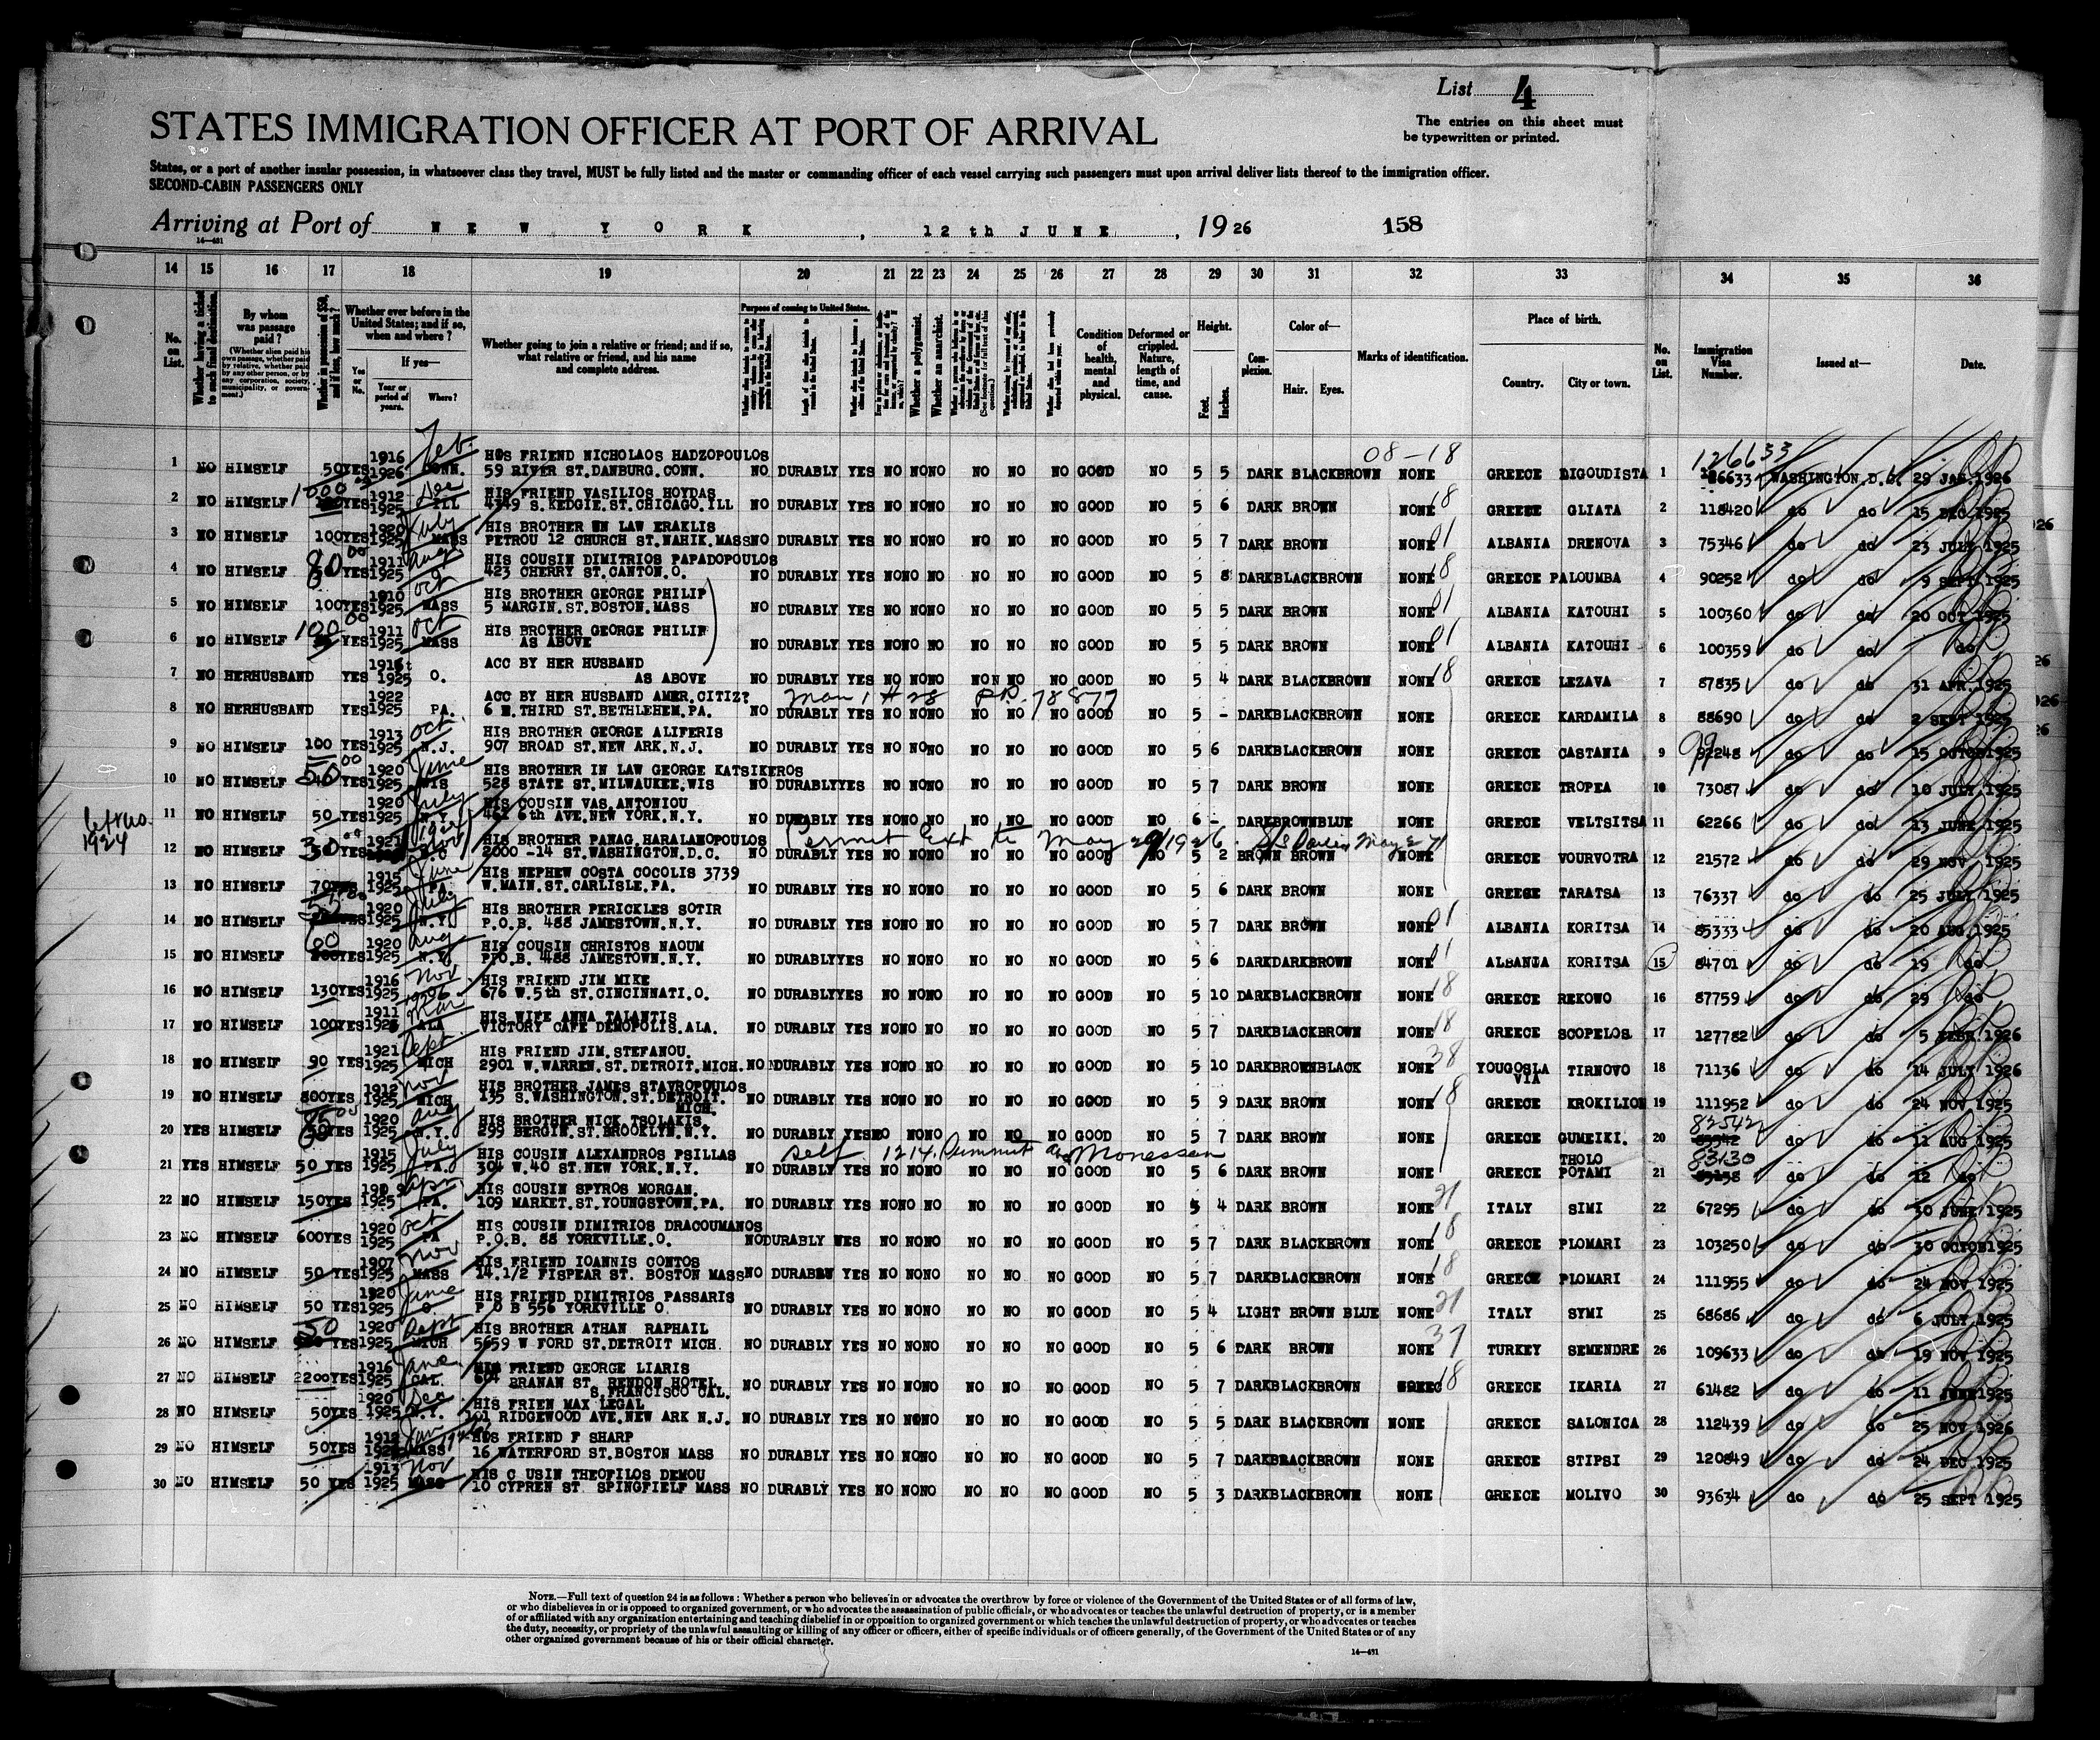 List 4
The entries on this sheet must
be typewritten or printed.
STATES IMMIGRATION OFFICER AT PORT OF ARRIVAL
States, or a port of another insular possession, in whatsoever class they travel, MUST be fully listed and the master or commanding officer of each vessel carrying such passengers must upon arrival deliver lists thereof to the immigration officer.
SECOND-CABIN PASSENGERS ONLY
Arriving at Port of NEW YORK, 12th JUNE, 19 26 158
14 15 16 17 18 19 20 21 22 23 24 25 26 27 28 29 30 31 32 33 34 35 36
No. on List.
Whether having a ticket to such final destination.
By whom was passage paid?
(Whether alien paid his own passage, whether paid by relative, whether paid by any other person, or by any corporation, society, municipality, or government.)
Whether ever before in the United States; and if so, when and where?
If yes—
Yes or No.
Year or period of years.
Where?
Whether going to join a relative or friend; and if so, what relative or friend, and his name and complete address.
Purpose of coming to United States.
Whether a polygamist.
Whether an anarchist.
Condition of health, mental and physical.
Deformed or crippled. Nature, length of time, and cause.
Height.
Feet. Inches.
Complexion.
Color of—
Hair. Eyes.
Marks of identification.
Place of birth.
Country. City or town.
No. on List.
Immigration Visa Number.
Issued at—
Date.
1 NO HIMSELF 50 YES 1916 1926 Feb CONN. HIS FRIEND NICHOLAOS HADZOPOULOS
59 RIVER ST.DANBURG.CONN. NO DURABLY YES NO NO NO NO NO NO GOOD NO 5 5 DARK BLACK BROWN NONE 08-18 GREECE DIGOUDISTA 1 126633 WASHINGTON.D.C. 29 JAN.1926
2 NO HIMSELF 1000 YES 1912 1925 Dec ILL HIS FRIEND VASILIOS HOYDAS
4349 S.KEDGIE.ST.CHICAGO.ILL NO DURABLY YES NO NO NO NO NO NO GOOD NO 5 6 DARK BROWN NONE 18 GREECE GLIATA 2 118420 do do 15 DEC 1925
3 NO HIMSELF 100 YES 1920 1925 July MASS HIS BROTHER IN LAW ERAKLIS
PETROU 12 CHURCH ST.NAHIK.MASS NO DURABLY YES NO NO NO NO NO NO GOOD NO 5 7 DARK BROWN NONE 01 ALBANIA DRENOVA 3 75346 do do 23 JULY 1925
4 NO HIMSELF 80 YES 1911 1925 Aug HIS COUSIN DIMITRIOS PAPADOPOULOS
423 CHERRY ST.CANTON.O. NO DURABLY YES NO NO NO NO NO NO GOOD NO 5 8 DARK BLACK BROWN NONE 18 GREECE PALOUMBA 4 90252 do do 9 SEPT 1925
5 NO HIMSELF 100 YES 1910 1925 Oct MASS HIS BROTHER GEORGE PHILIP
5 MARGIN.ST.BOSTON.MASS NO DURABLY YES NO NO NO NO NO NO GOOD NO 5 5 DARK BROWN NONE 01 ALBANIA KATOUHI 5 100360 do do 20 OCT 1925
6 NO HIMSELF 100 YES 1911 1925 Oct MASS HIS BROTHER GEORGE PHILIP
AS ABOVE NO DURABLY YES NO NO NO NO NO NO GOOD NO 5 5 DARK BROWN NONE 01 ALBANIA KATOUHI 6 100359 do do do
7 NO HERHUSBAND YES 1916 1925 O. ACC BY HER HUSBAND
AS ABOVE NO DURABLY YES NO NO NO NO NO NO GOOD NO 5 4 DARK BLACK BROWN NONE 18 GREECE LEZAVA 7 87835 do do 31 APR.1925
8 NO HERHUSBAND YES 1922 1925 PA. ACC BY HER HUSBAND AMER.CITIZ?
6 E.THIRD ST.BETHLEHEM.PA. NO DURABLY YES NO NO NO NO NO NO GOOD NO 5 - DARK BLACK BROWN NONE GREECE KARDAMILA 8 88690 do do 2 SEPT 1925
9 NO HIMSELF 100 YES 1913 1925 Oct N.J. HIS BROTHER GEORGE ALIFERIS
907 BROAD ST.NEW ARK.N.J. NO DURABLY YES NO NO NO NO NO NO GOOD NO 5 6 DARK BLACK BROWN NONE GREECE CASTANIA 9 99248 do do 15 OCTOB 1925
10 NO HIMSELF 50 YES 1920 1925 June WIS HIS BROTHER IN LAW GEORGE KATSIKEROS
528 STATE ST.MILWAUKEE.WIS NO DURABLY YES NO NO NO NO NO NO GOOD NO 5 7 DARK BROWN NONE GREECE TROPEA 10 73087 do do 10 JULY 1925
11 NO HIMSELF 50 YES 1920 1925 July N.Y. HIS COUSIN VAS.ANTONIOU
461 6th AVE.NEW YORK.N.Y. NO DURABLY YES NO NO NO NO NO NO GOOD NO 6 - DARK BROWN BLUE NONE GREECE VELTSITSA 11 62266 do do 13 JUNE 1925
1924
12 NO HIMSELF 30 YES 1921 D.C HIS BROTHER PANAG.HARALAMOPOULOS
Permit Ext to May 29/1926
2000 -14 ST.WASHINGTON.D.C. NO DURABLY YES NO NO NO NO NO NO GOOD NO 5 2 BROWN BROWN NONE GREECE VOURVOTRA 12 21572 do do 29 NOV 1925
13 NO HIMSELF 70 YES 1915 1925 June PA. HIS NEPHEW COSTA COCOLIS 3739
W.MAIN.ST.CARLISLE.PA. NO DURABLY YES NO NO NO NO NO NO GOOD NO 5 6 DARK BROWN NONE GREECE TARATSA 13 76337 do do 25 JULY 1925
14 NO HIMSELF YES 1920 1925 July N.Y. HIS BROTHER PERICKLES SOTIR
P.O.B. 488 JAMESTOWN.N.Y. NO DURABLY YES NO NO NO NO NO NO GOOD NO 5 7 DARK BROWN NONE 01 ALBANIA KORITSA 14 85333 do do 20 AUG.1925
15 NO HIMSELF 60 YES 1920 1925 Aug N.Y HIS COUSIN CHRISTOS NAOUM
P.O.B. 488 JAMESTOWN.N.Y. NO DURABLY YES NO NO NO NO NO NO GOOD NO 5 6 DARK DARK BROWN NONE 01 ALBANIA KORITSA 15 84701 do do 19 do
16 NO HIMSELF 130 YES 1916 1925 Nov HIS FRIEND JIM MIKE
676 W.5th ST.CINCINNATI.O. NO DURABLY YES NO NO NO NO NO NO GOOD NO 5 10 DARK BLACK BROWN NONE 18 GREECE REKOWO 16 87759 do do 29 do
17 NO HIMSELF 100 YES 1911 1926 Mar ALA HIS WIFE ANNA TALANTIS
VICTORY CAFE DEMOPOLIS.ALA. NO DURABLY YES NO NO NO NO NO NO GOOD NO 5 7 DARK BLACK BROWN NONE 18 GREECE SCOPELOS 17 127782 do do 5 FEBR.1926
18 NO HIMSELF 90 YES 1921 1925 Sept MICH HIS FRIEND JIM.STEFANOU.
2901 W.WARREN.ST.DETROIT.MICH. NO DURABLY YES NO NO NO NO NO NO GOOD NO 5 10 DARK BROWN BLACK NONE 38 YOUGOSLAVIA TIRNOVO 18 71136 do do 14 JULY 1926
19 NO HIMSELF 800 YES 1912 1925 Nov MICH HIS BROTHER JAMES STAVROPOULOS
135 S.WASHINGTON.ST.DETROIT.MICH. NO DURABLY YES NO NO NO NO NO NO GOOD NO 5 9 DARK BROWN NONE 18 GREECE KROKILION 19 111952 do do 24 NOV 1925
20 YES HIMSELF YES 1920 1925 Aug N.Y. HIS BROTHER NICK TSOLAKIS.
299 BERGIN.ST.BROOKLYN.N.Y. NO DURABLY YES NO NO NO NO NO NO GOOD NO 5 7 DARK BROWN NONE GREECE GUMEIKI. 20 82542 do do 11 AUG 1925
21 YES HIMSELF 50 YES 1915 1925 July PA. HIS COUSIN ALEXANDROS PSILLAS
self 1214 Summit Ave Monessen
304 W.40 ST.NEW YORK.N.Y. NO DURABLY YES NO NO NO NO NO NO GOOD NO 5 6 DARK BROWN NONE GREECE THOLO POTAMI 21 83130 do do 12 do
22 NO HIMSELF 150 YES 1925 Apr PA. HIS COUSIN SPYROS MORGAN.
109 MARKET.ST.YOUNGSTOWN.PA. NO DURABLY YES NO NO NO NO NO NO GOOD NO 5 4 DARK BROWN NONE 21 ITALY SIMI 22 67295 do do 30 JUNE 1925
23 NO HIMSELF 600 YES 1920 1925 Oct PA HIS COUSIN DIMITRIOS DRACOUMANOS
P.O.B. 88 YORKVILLE.O. NO DURABLY YES NO NO NO NO NO NO GOOD NO 5 7 DARK BLACK BROWN NONE 18 GREECE PLOMARI 23 103250 do do 30 OCTOB 1925
24 NO HIMSELF 50 YES 1907 1925 Nov MASS HIS FRIEND IOANNIS CONTOS
14.1/2 FISPEAR ST. BOSTON MASS NO DURABLY YES NO NO NO NO NO NO GOOD NO 5 7 DARK BLACK BROWN NONE 18 GREECE PLOMARI 24 111955 do do 24 NOV 1925
25 NO HIMSELF 50 YES 1920 1925 June O HIS FRIEND DIMITRIOS PASSARIS
P O B 556 YORKVILLE O. NO DURABLY YES NO NO NO NO NO NO GOOD NO 5 4 LIGHT BROWN BLUE NONE 21 ITALY SYMI 25 68686 do do 6 JULY 1925
26 NO HIMSELF 50 YES 1920 1925 Sept MICH HIS BROTHER ATHAN RAPHAIL
5659 W FORD ST.DETROIT MICH. NO DURABLY YES NO NO NO NO NO NO GOOD NO 5 6 DARK BROWN NONE 37 TURKEY SEMENDRE 26 109633 do do 19 NOV 1925
27 NO HIMSELF 2200 YES 1916 1925 June CAL. HIS FRIEND GEORGE LIARIS
604 BRANAN ST. RENDON HOTEL
S.FRANCISCO CAL. NO DURABLY YES NO NO NO NO NO NO GOOD NO 5 7 DARK BLACK BROWN 18 GREECE IKARIA 27 61482 do do 11 JUNE 1925
28 NO HIMSELF 50 YES 1920 1925 Dec N.Y. HIS FRIEN MAX LEGAL
101 RIDGEWOOD AVE.NEW ARK N.J. NO DURABLY YES NO NO NO NO NO NO GOOD NO 5 5 DARK BLACK BROWN NONE GREECE SALONICA 28 112439 do do 25 NOV 1926
29 NO HIMSELF 50 YES 1912 Jan 1926 MASS HIS FRIEND F SHARP
16 WATERFORD ST.BOSTON MASS NO DURABLY YES NO NO NO NO NO NO GOOD NO 5 7 DARK BLACK BROWN NONE GREECE STIPSI 29 120849 do do 24 DEC 1925
30 NO HIMSELF 50 YES 1913 1925 Nov MASS HIS C USIN THEOFILOS DEMOU
10 CYPREN ST. SPINGFIELF MASS NO DURABLY YES NO NO NO NO NO NO GOOD NO 5 3 DARK BLACK BROWN NONE GREECE MOLIVO 30 93634 do do 25 SEPT 1925
NOTE.—Full text of question 24 is as follows: Whether a person who believes in or advocates the overthrow by force or violence of the Government of the United States or of all forms of law,
or who disbelieves in or is opposed to organized government, or who advocates the assassination of public officials, or who advocates or teaches the unlawful destruction of property, or is a member
of or affiliated with any organization entertaining and teaching disbelief in or opposition to organized government or which teaches the unlawful destruction of property, or who advocates or teaches
the duty, necessity, or propriety of the unlawful assaulting or killing of any officer or officers, either of specific individuals or of officers generally, of the Government of the United States or of any
other organized government because of his or their official character.
14—431